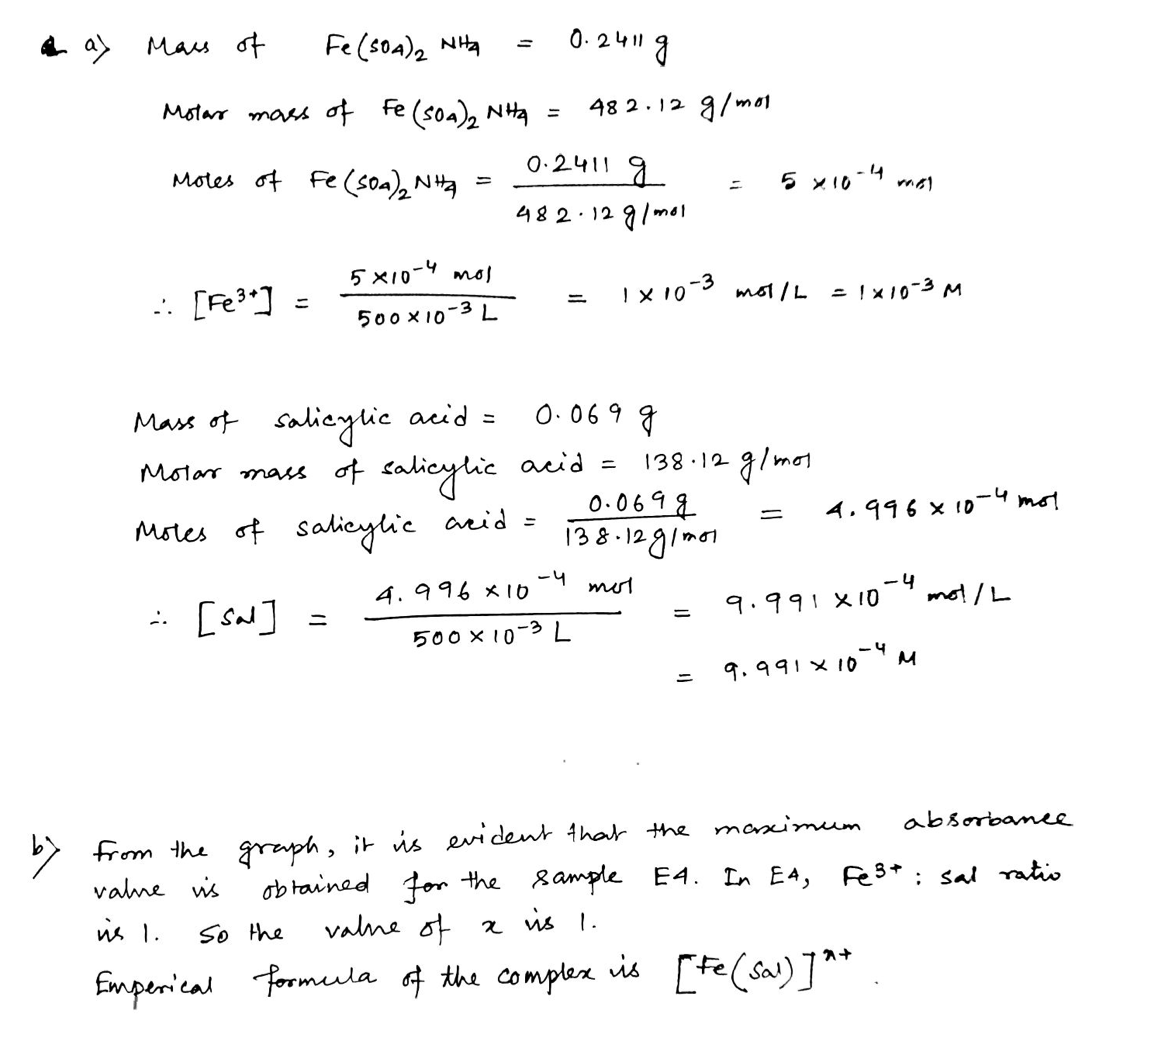 a) Mass of Fe(SO4)2 NH4 = 0.2411 g
Molar mass of Fe(SO4)2 NH4 = 482.12 g/mol
Moles of Fe(SO4)2 NH4 = 0.2411 g / 482.12 g/mol = 5 × 10⁻⁴ mol
∴ [Fe³⁺] = 5 × 10⁻⁴ mol / 500 × 10⁻³ L = 1 × 10⁻³ mol/L = 1 × 10⁻³ M
Mass of salicylic acid = 0.069 g
Molar mass of salicylic acid = 138.12 g/mol
Moles of salicylic acid = 0.069 g / 138.12 g/mol = 4.996 × 10⁻⁴ mol
∴ [Sal] = 4.996 × 10⁻⁴ mol / 500 × 10⁻³ L = 9.991 × 10⁻⁴ mol/L
= 9.991 × 10⁻⁴ M
b) From the graph, it is evident that the maximum absorbance
value is obtained for the sample E4. In E4, Fe³⁺ : sal ratio
is 1. So the value of x is 1.
Emperical formula of the complex is [Fe(Sal)]ⁿ⁺.